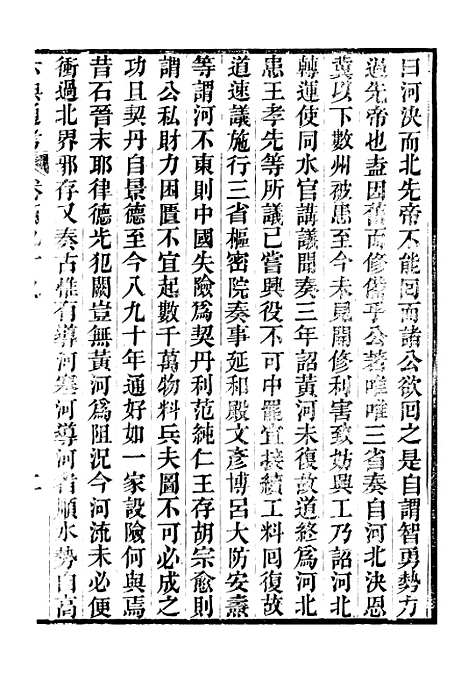 曰河決而北先帝不能回而諸公欲回之是自謂智勇勢方
過先帝也盍因舊而修儲乎公著唯唯三省奏自河北決恩
冀以下數州被患至今未見開修利害致妨興工乃詔河北
轉運使同水官講議聞奏三年詔黃河未復故道終為河北
患王孝先等所議已嘗興役不可中罷宜接續工料回復故
道速議施行三省樞密院奏事延和殿文彥博呂大防安燾
等謂河不東則中國失險為契丹利范純仁王存胡宗愈則
謂公私財力困匱不宜起數千萬物料兵夫圖不可必成之
功且契丹自景德至今八九十年通好如一家設險何與焉
昔石晉末耶律德光犯闕豈無黃河為阻況今河流未必便
衝過北界耶存又奏古惟有導河塞河導河者順水勢自高
通考 卷